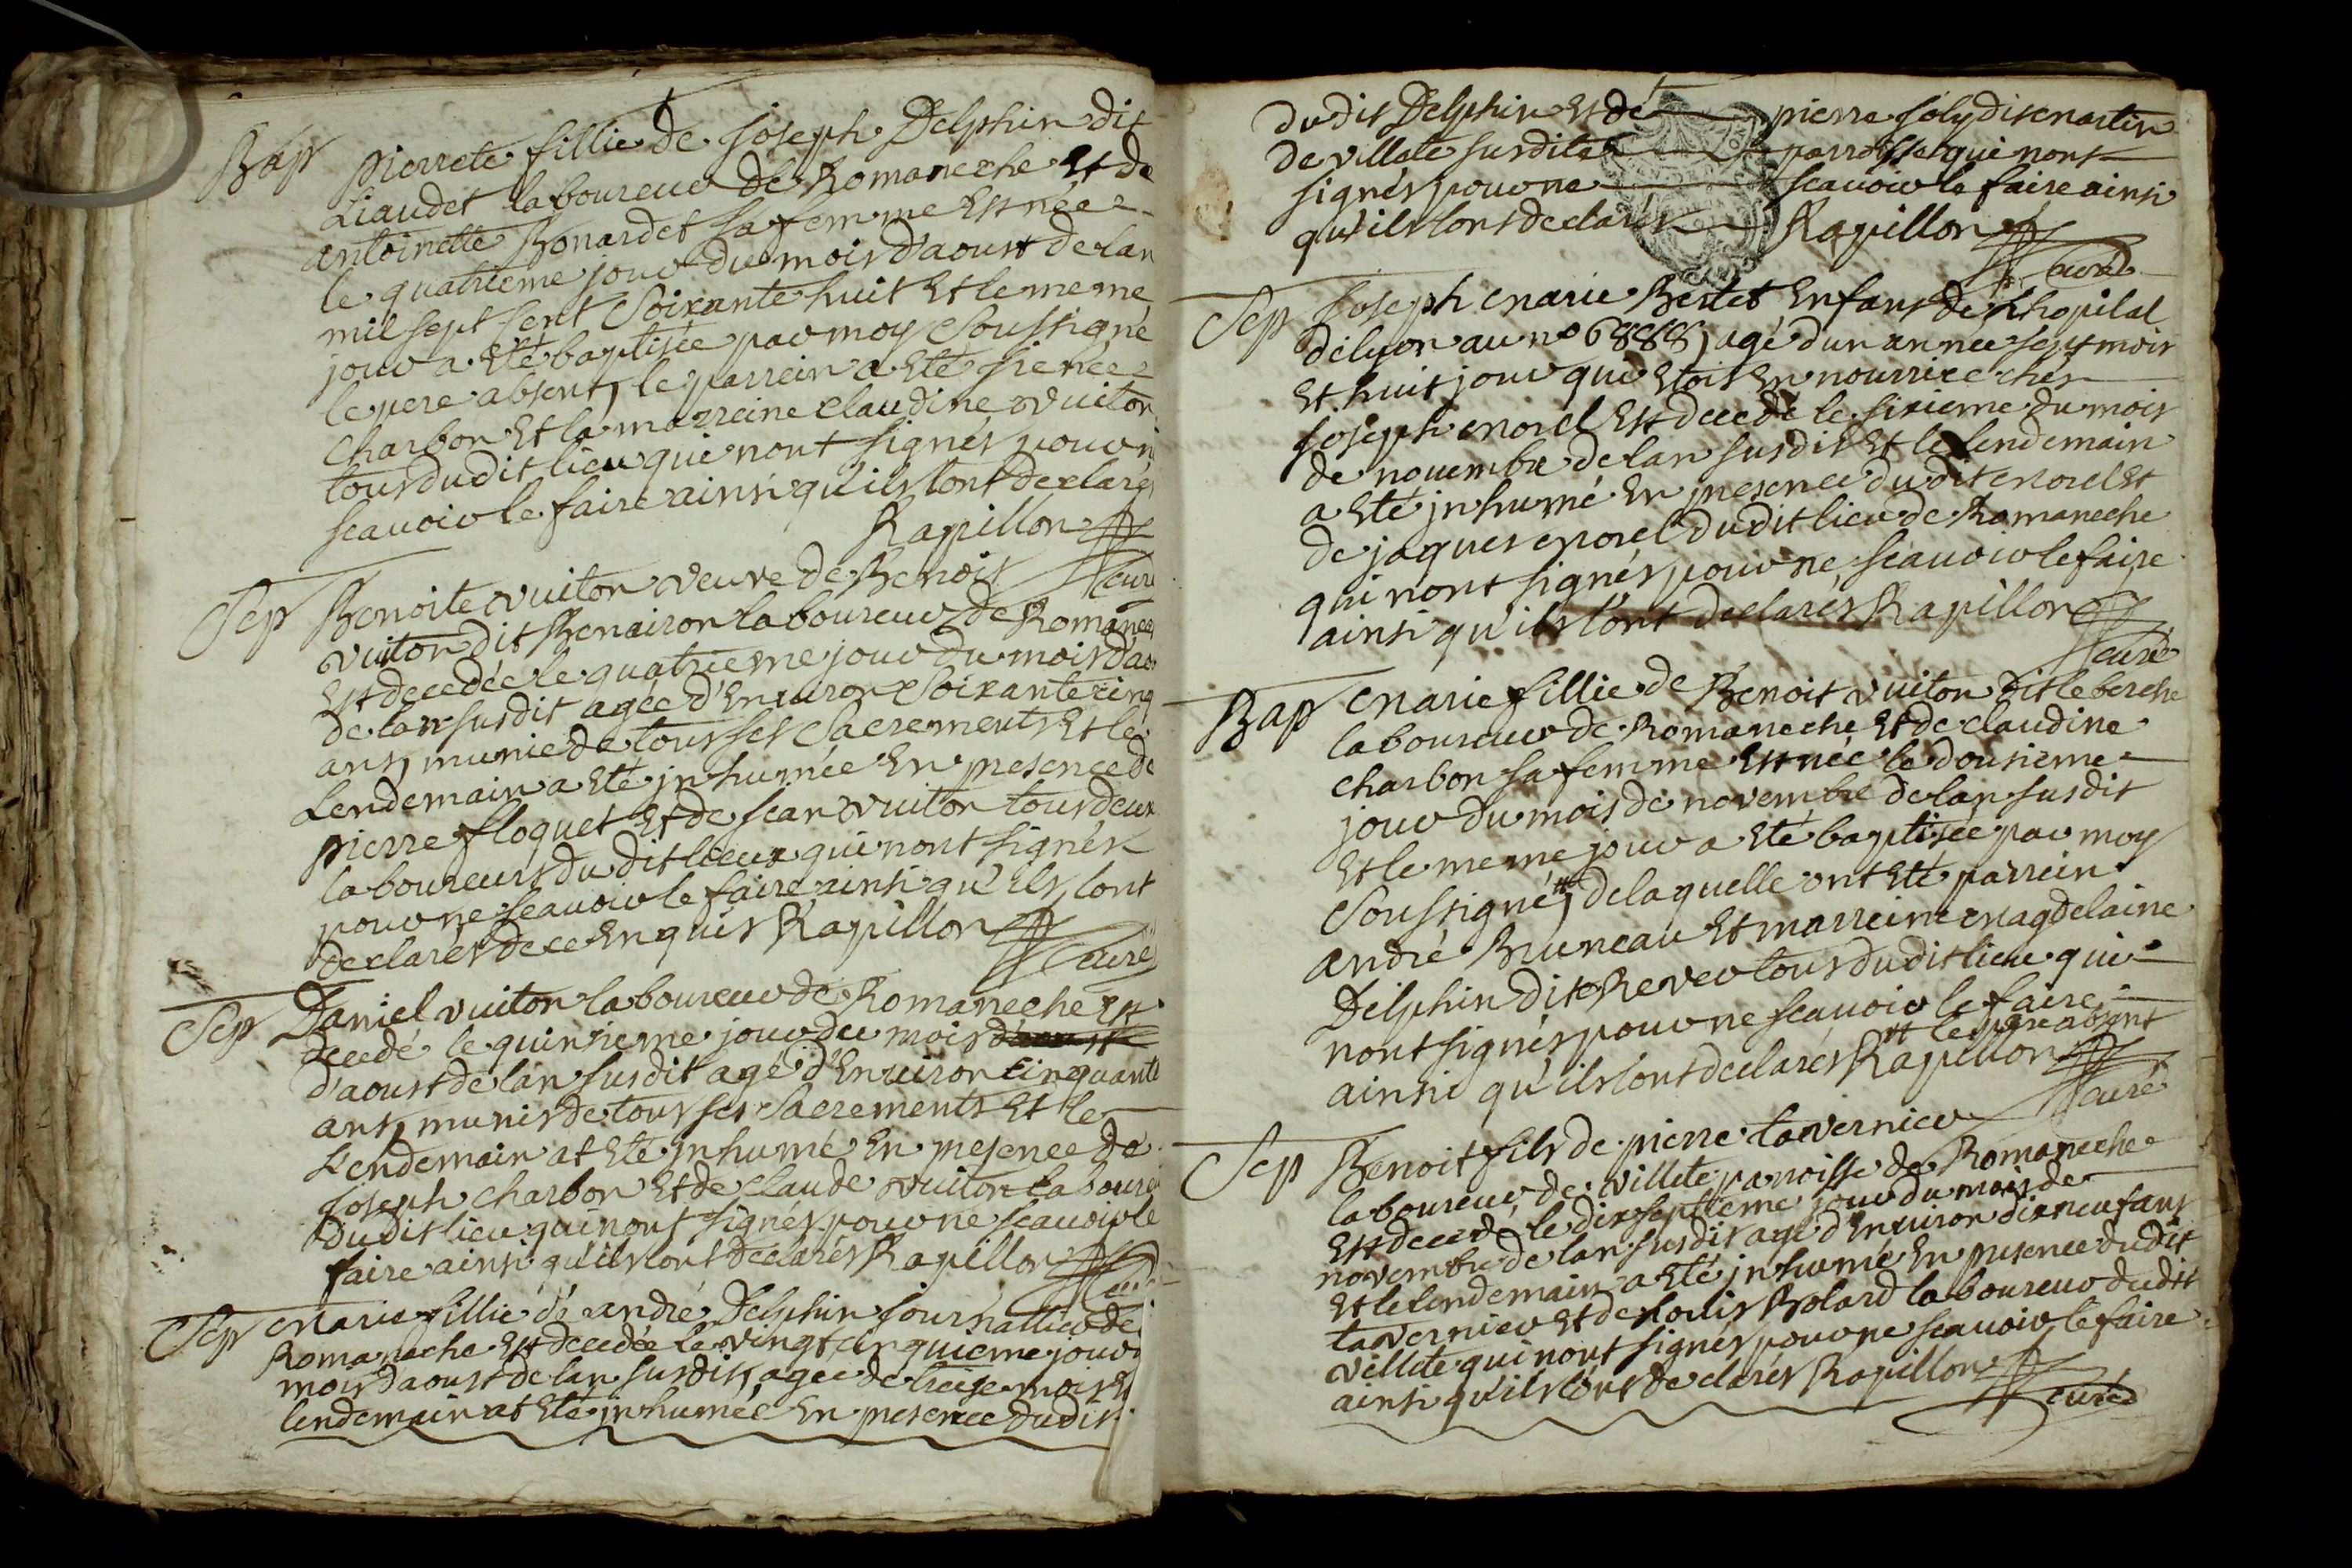 Bap pierrete fillie de joseph Delphin dit
Liaudet laboureur de Romaneche Et de
antoinette Bonardet sa femme Est née
le quatrieme jour du mois d'aoust de lan
mil sept sent Soixante huit Et le meme
jour a Eté baptisée par moy Soussigné
le pere absent, le parrein a Eté
Charbon Et la marreine claudine vuiton
tous du dit lieu qui nont signés pour n
scauoir le faire ainsi qu'ils lont declarés
Rapillon
curé
Sep Benoite vuiton veuve de Benoit
vuiton dit Benairon laboureur de Romanec
Est decedée le quatrieme jour du mois d'ao
de lan susdit agée d'Enuiron Soixante cinq
ans, munie de tous ses Sacrements Et le
Lendemain a Eté jnhumée En presence de
pierre floquet Et de jean vuiton tous deux
laboureurs du dit lieux qui nont signés
pour ne scauoir le faire ainsi qu'ils lont
declarés de ce Enquis Rapillon
curé
Sep Daniel vuiton laboureur de Romaneche Est
decedé le quinzieme jour du mois d'aoust
d'aoust de lan susdit agé d'Enuiron cinquante
ans, munis de tous ses Sacrements Et le
Lendemain at Eté jnhumé En presence de
joseph charbon Et de claude vuiton laboure
du dit lieu qui nont signés pour ne scauoir le
faire ainsi qu'ils lont declarés Rapillon
Sep marie fillie de andré Delphin journallier de
Romaneche Est decedée le vingt cinquieme jour
mois daoust de lan susdit, agée de treize mois Et
lendemain at Eté jnhumée En presence du dit
du dit Delphin Et de pierre joly dit martin
de villete susdite parroisse qui nont
signés pour ne scauoir le faire ainsi
qu'ils lont declarés Rapillon
curé
Sep joseph marie Bertet Enfans de Lhopital
de lyon au no 6888, agé dun année sept mois
Et huit jour qui Etoit En nourrice chés
joseph morel Est decedé le sixieme du mois
de nouembre de lan susdit Et le lendemain
a Eté jnhumé En presence du dit morel Et
de jaques morel du dit lieu de Romaneche
qui nont signés pour ne scauoir le faire
ainsi qu'ils lont declarés Rapillon
curé
Bap marie fillie de Benoit vuiton dit le berche
laboureur de Romaneche Et de claudine
charbon sa femme Est née le dousieme
jour du mois de novembre de lan susdit
Et le meme jour a Eté baptisée par moy
Soussigné, de laquelle ont Eté parrein
andré Bruneau Et marreine magdelaine
Delphin dit Rever tous du dit lieu qui
nont signés pour ne scauoir le faire
le pere absent
ainsi qu'ils lont declarés Rapillon
curé
Sep Benoit fils de pierre tavernier
laboureur de villete parroisse de Romaneche
Est decedé le dixseptieme jour du mois de
novembre de lan susdit agé d'Enuiron dix neuf ans
Et le lendemain a Eté jnhumé En presence du dit
tavernier Et de Louis Bolard laboureur du dit
villete qui nont signés pour ne scauoir le faire
ainsi qu'ils lont declarés Rapillon
curé